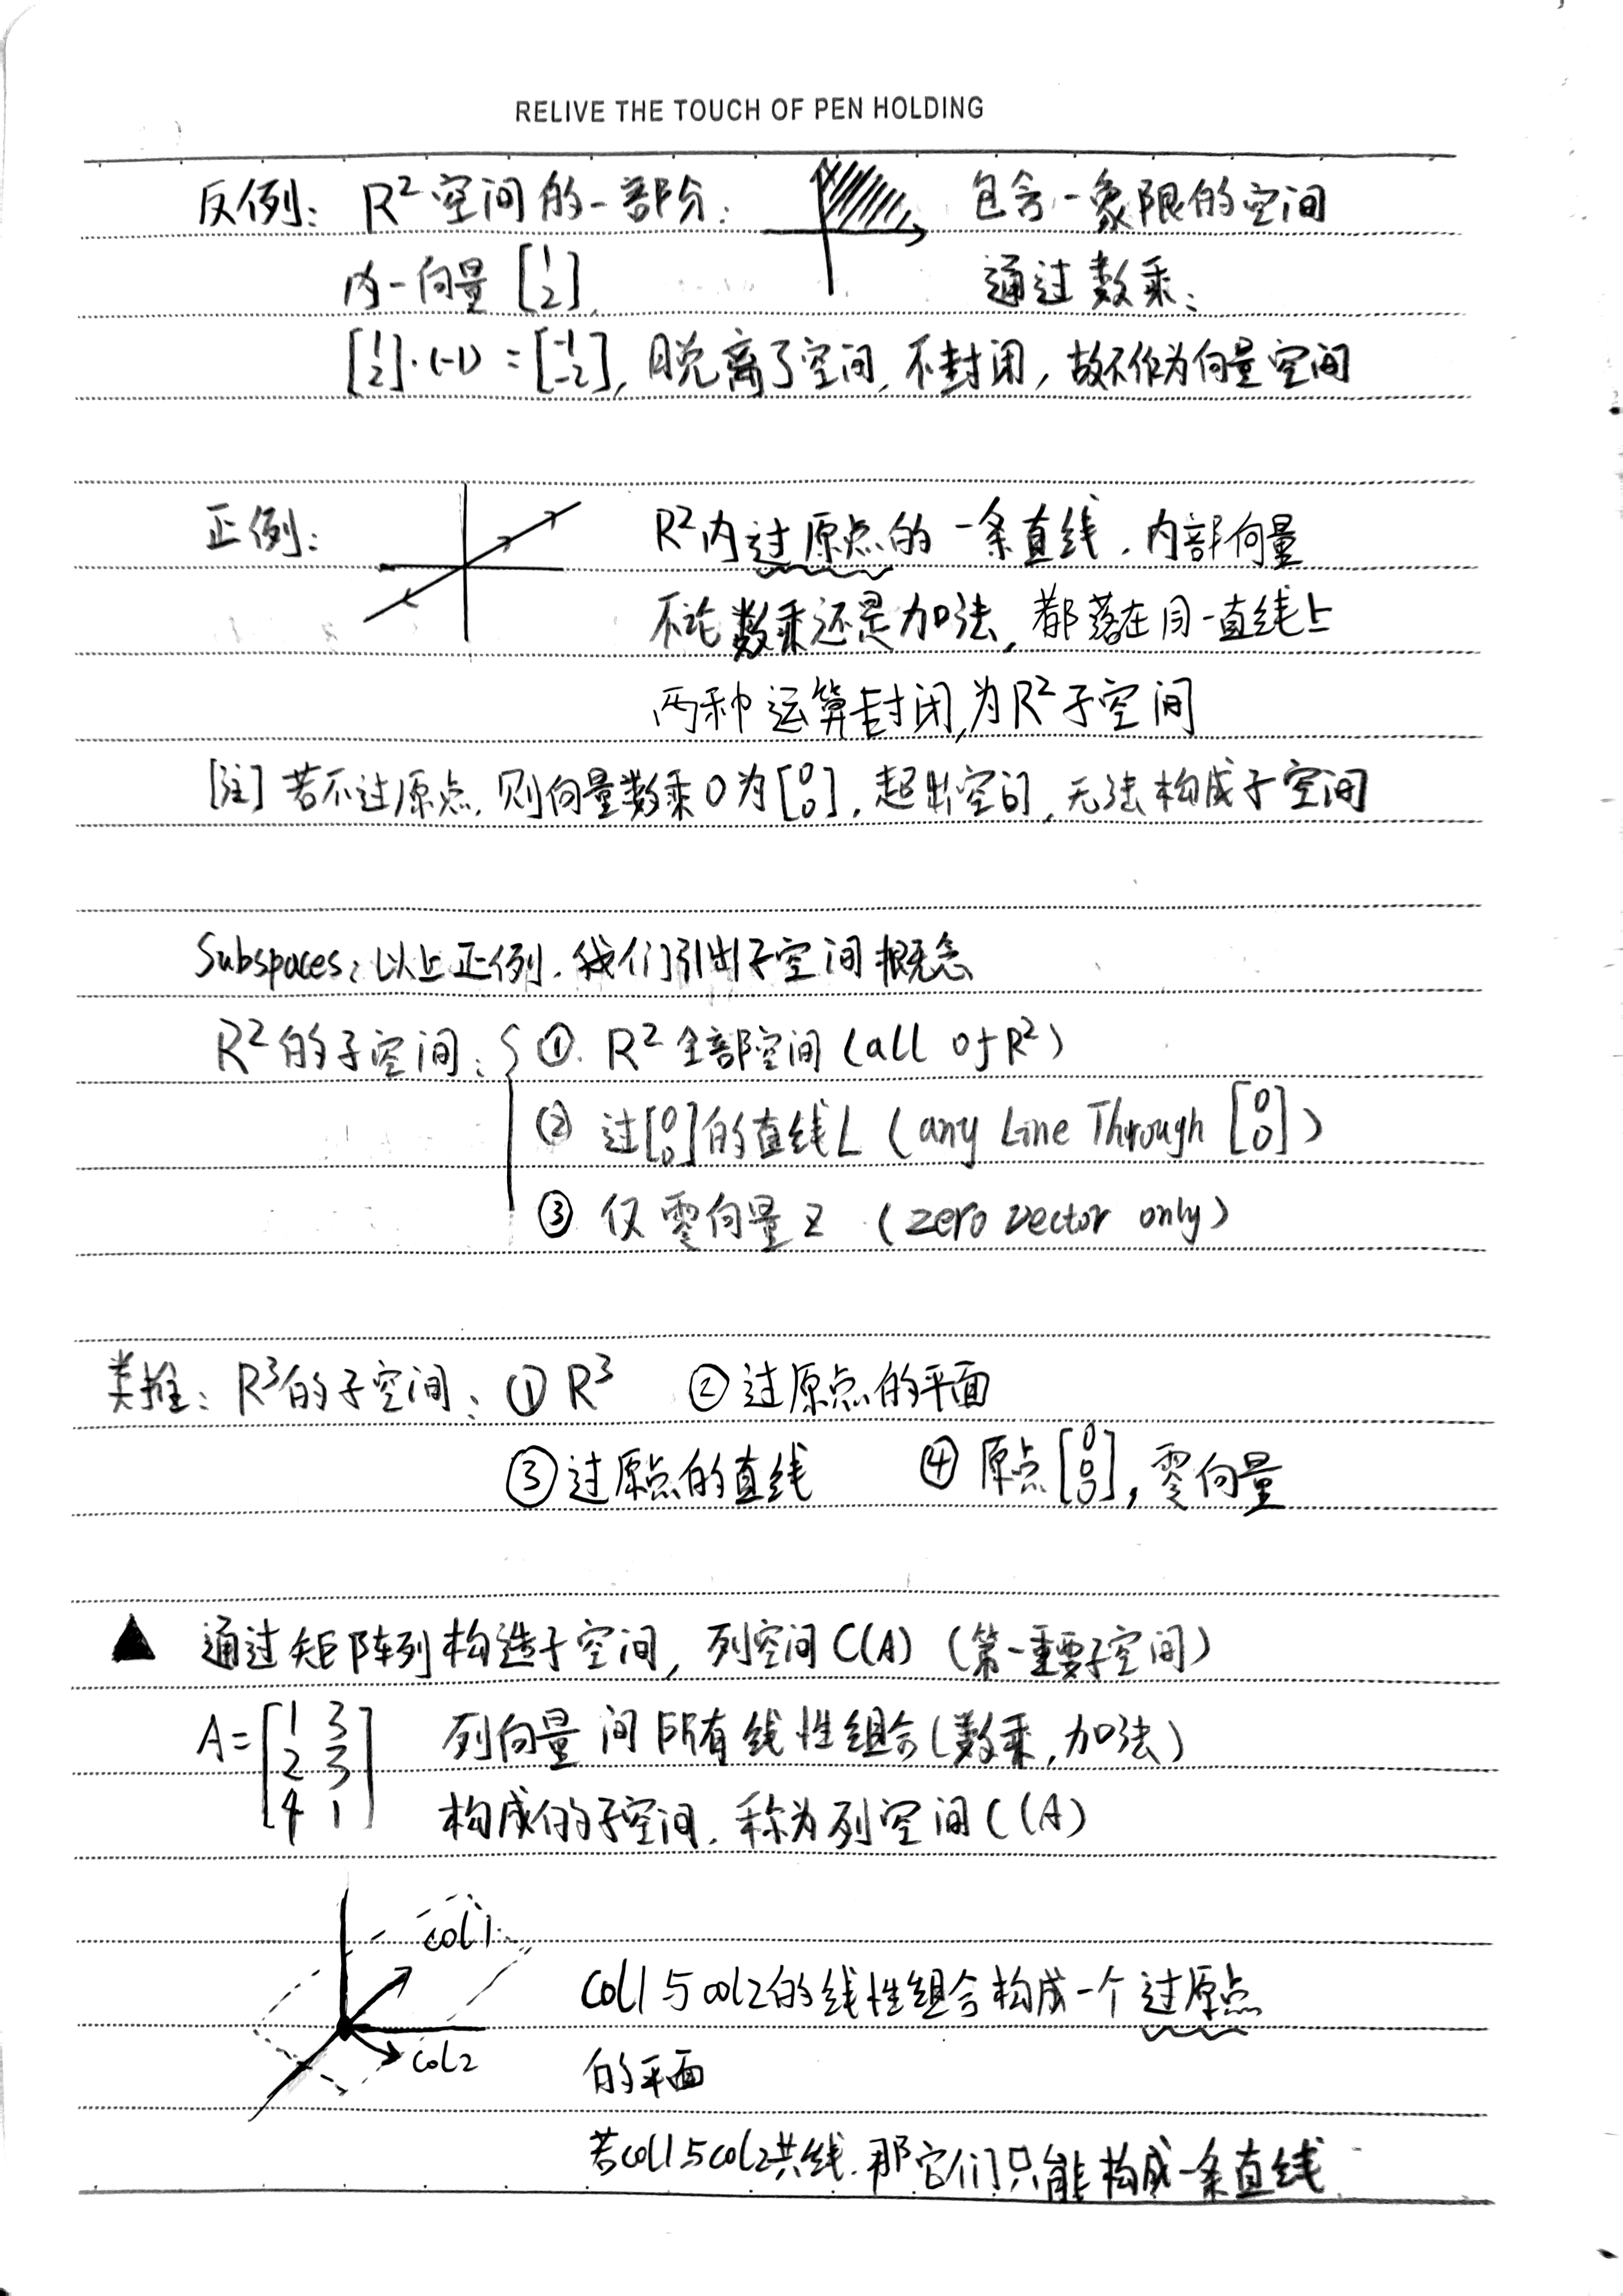 RELIVE THE TOUCH OF PEN HOLDING
反例: R² 空间的一部分: 包含一象限的空间
内一向量 [1 2], 通过数乘:
[1 2]·(-1) = [-1 -2], 脱离了空间, 不封闭, 故不作为向量空间
正例: R²内过原点的一条直线, 内部向量
不论数乘还是加法, 都落在同一直线上
两种运算封闭, 为R²子空间
[注] 若不过原点, 则向量数乘0为[0 0], 超出空间, 无法构成子空间
Subspaces: 以上正例, 我们引出子空间概念
R²的子空间: { ①. R² 全部空间 (all of R²)
② 过[0 0]的直线L (any Line Through [0 0])
③ 仅零向量Z (zero vector only)
类推: R³的子空间: ① R³ ② 过原点的平面
③ 过原点的直线 ④ 原点[0 0 0], 零向量
▲ 通过矩阵列构造子空间, 列空间C(A) (第一重要子空间)
A = [1 3 2 3 4 1] 列向量间所有线性组合(数乘, 加法)
构成的子空间, 称为列空间C(A)
col1
col1与col2的线性组合构成一个过原点
col2
的平面
若col1与col2共线, 那它们只能构成一条直线